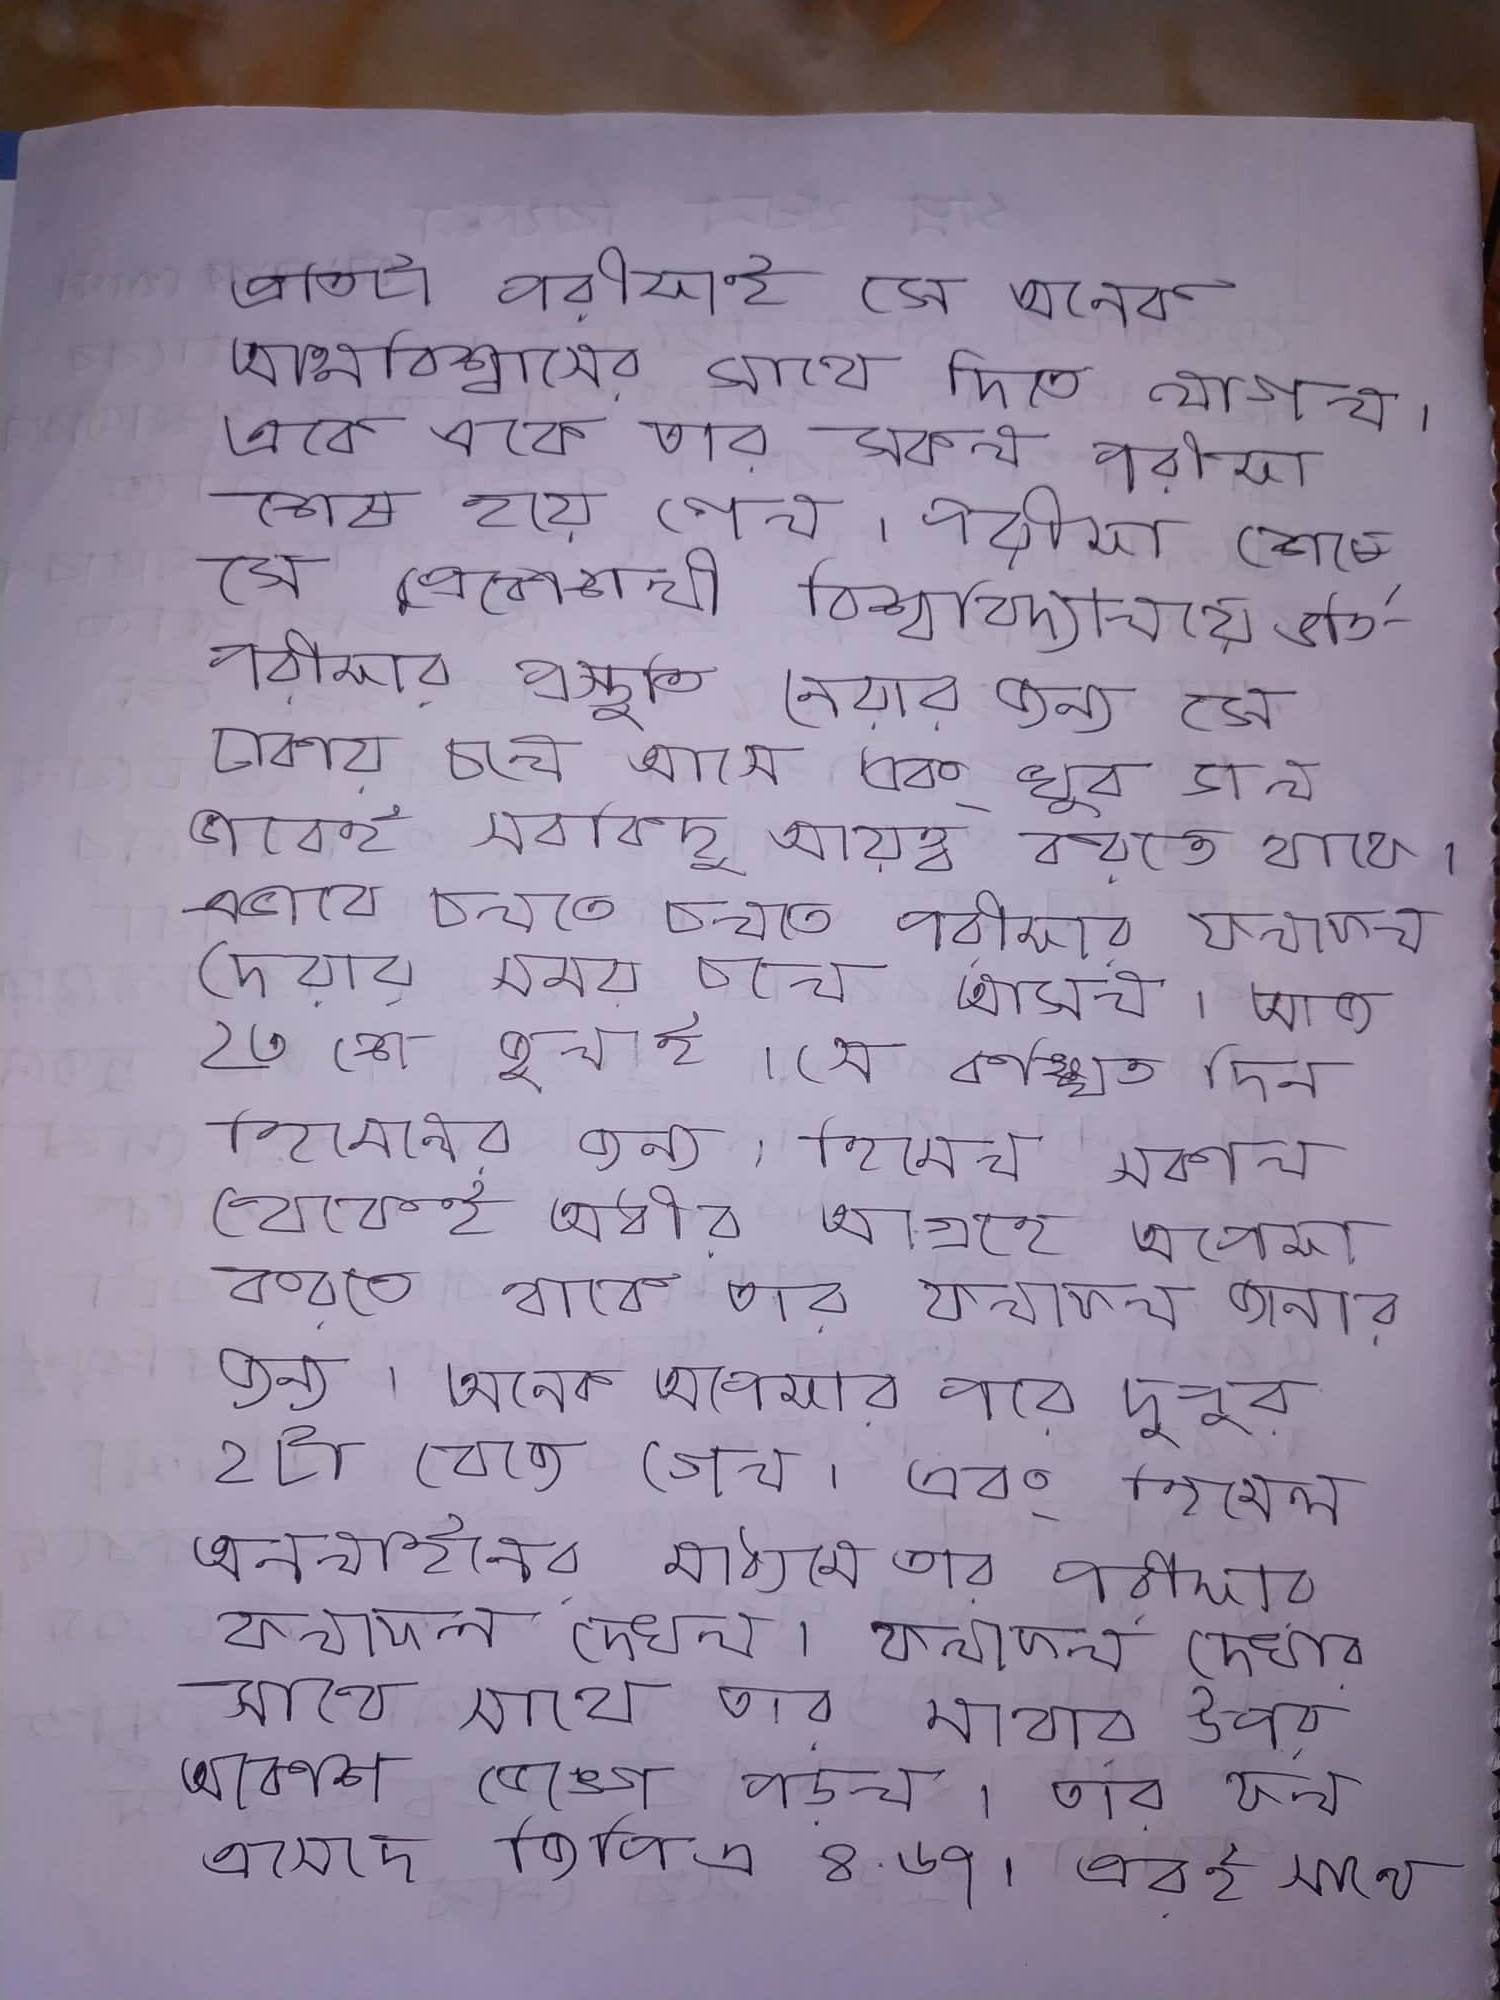 প্রতিটা পরীক্ষাই সে অনেক
আত্মবিশ্বাসের সাথে দিতে লাগল।
একে একে তার সকল পরীক্ষা
শেষ হয়ে গেল। পরীক্ষা শেষে
সে প্রকৌশলী বিশ্ববিদ্যালয়ে ভর্তি
পরীক্ষার প্রস্তুতি নেয়ার জন্য সে
ঢাকায় চলে আসে এবং খুব ভাল
ভাবেই সবকিছু আয়ত্ত্ব করতে থাকে।
এভাবে চলতে চলতে পরীক্ষার ফলাফল
দেয়ার সময় চলে আসল। আজ
২৩ শে জুলাই। সে কাঙ্খিত দিন
হিমেলের জন্য। হিমেল সকাল
থেকেই অধীর আগ্রহে অপেক্ষা
করতে থাকে তার ফলাফল জানার
জন্য। অনেক অপেক্ষার পরে দুপুর
২টা বেজে গেল। এবং হিমেল
অনলাইনের মাধ্যমে তার পরীক্ষার
ফলাফল দেখল। ফলাফল দেখার
সাথে সাথে তার মাথার উপর
আকাশ ভেঙ্গে পড়ল। তার ফল
এসেছে জিপিএ ৪.৬৭। এরই সাথে